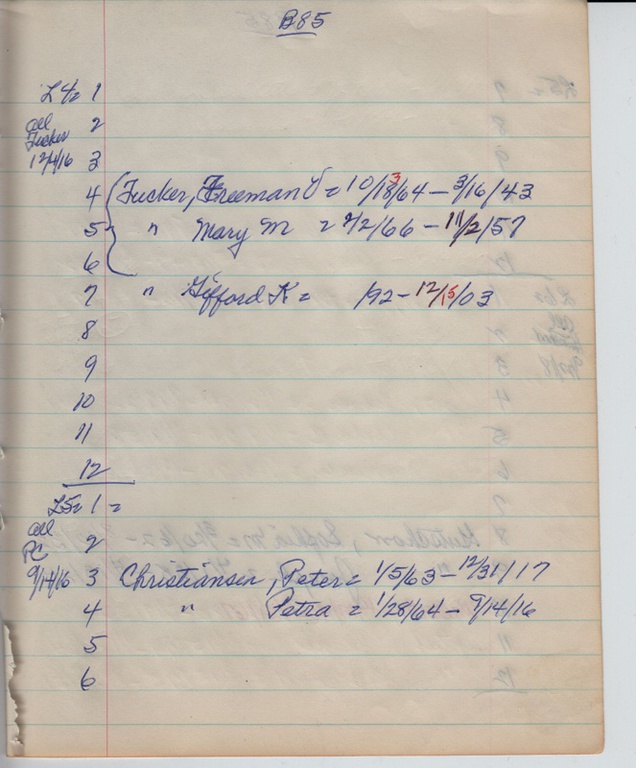 B85
L4= 1
all 2
Tucker
12/4/16 3
4 Tucker, Freeman = 10/18/64 - 3/16/43
3
5 " Mary M = 2/2/66 - 11/2/57
6
7 " Gifford K = /92 - 12/15/03
8
9
10
11
12
L5= 1 =
all 2
PC
9/14/16 3 Christiansen, Peter = 1/5/63 - 12/31/17
4 " Petra = 1/28/64 - 9/14/16
5
6